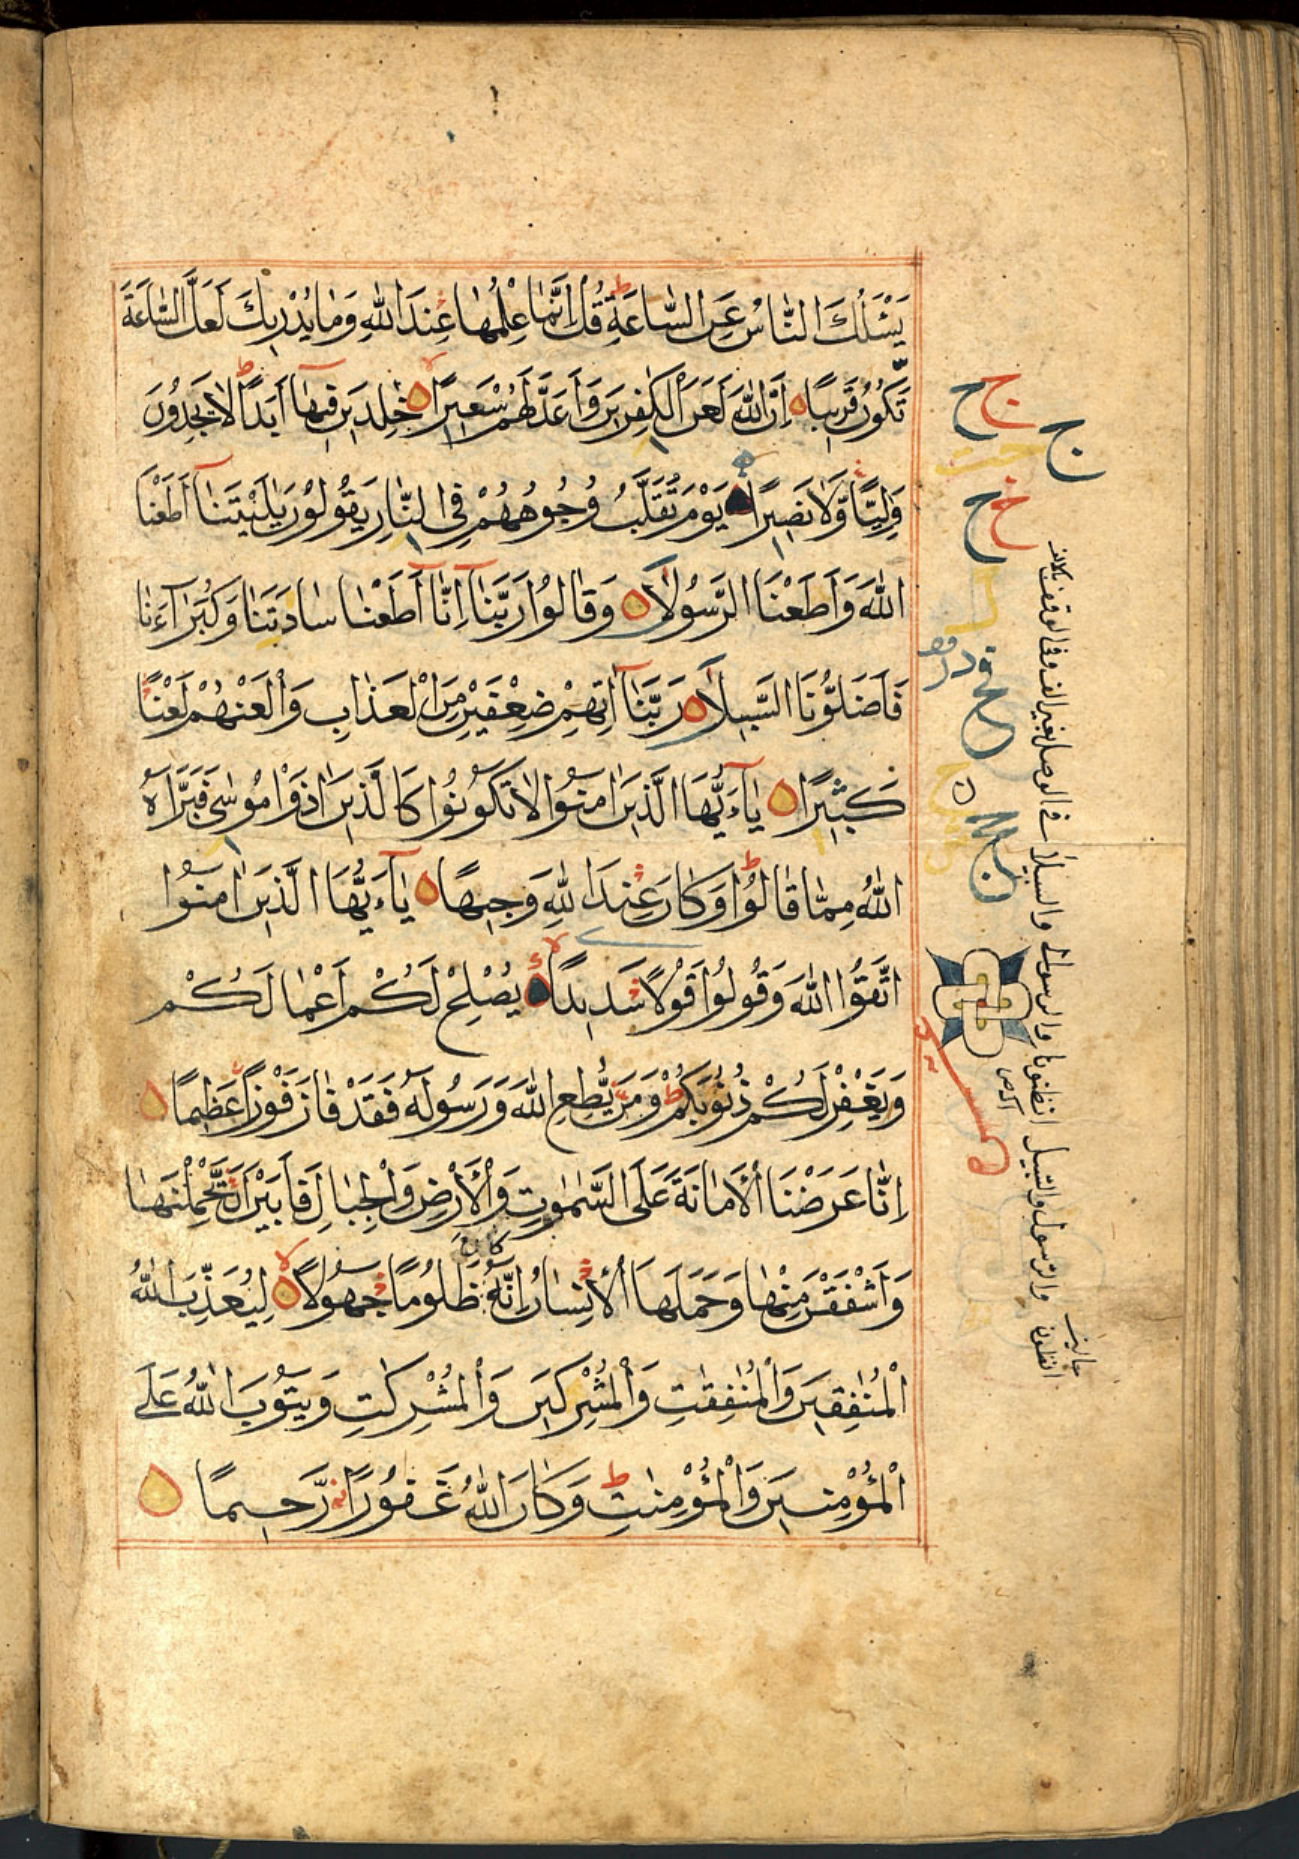 يَسْـَٔلُكَ النَّاسُ عَنِ السَّاعَةِ ط قُلْ اِنَّمَا عِلْمُهَا عِنْدَ اللّٰهِ وَمَا يُدْرِيكَ لَعَلَّ السَّاعَةَ
تَكُوْنُ قَرِيبًا اِنَّ اللّٰهَ لَعَنَ الْكٰفِرِينَ وَاَعَدَّ لَهُمْ سَعِيرًا لا خٰلِدِينَ فِيهَآ اَبَدًا ط لَا يَجِدُونَ
وَلِيًّا وَّلَا نَصِيرًا يَوْمَ تُقَلَّبُ وُجُوهُهُمْ فِي النَّارِ يَقُولُوْنَ يٰلَيْتَنَآ اَطَعْنَا
اللّٰهَ وَاَطَعْنَا الرَّسُولَا وَقَالُوا رَبَّنَآ اِنَّآ اَطَعْنَا سَادَتَنَا وَكُبَرَآءَنَا
فَاَضَلُّوْنَا السَّبِيلَا رَبَّنَآ اٰتِهِمْ ضِعْفَيْنِ مِنَ الْعَذَابِ وَالْعَنْهُمْ لَعْنًا
كَبِيْرًا يٰٓاَيُّهَا الَّذِينَ اٰمَنُوا لَا تَكُوْنُوا كَالَّذِينَ اٰذَوْا مُوْسٰى فَبَرَّاَهُ
اللّٰهُ مِمَّا قَالُوْا ط وَكَانَ عِنْدَ اللّٰهِ وَجِيهًا يٰٓاَيُّهَا الَّذِينَ اٰمَنُوا
اتَّقُوا اللّٰهَ وَقُولُوْا قَوْلًا سَدِيدًا لا يُصْلِحْ لَكُمْ اَعْمَالَكُمْ
وَيَغْفِرْ لَكُمْ ذُنُوْبَكُمْ ط وَمَنْ يُّطِعِ اللّٰهَ وَرَسُولَهُ فَقَدْ فَازَ فَوْزًا عَظِيمًا
اِنَّا عَرَضْنَا الْاَمَانَةَ عَلَى السَّمٰوٰتِ وَالْاَرْضِ وَالْجِبَالِ فَاَبَيْنَ اَنْ يَّحْمِلْنَهَا
وَاَشْفَقْنَ مِنْهَا وَحَمَلَهَا الْاِنْسَانُ اِنَّهُ كَانَ ظَلُوْمًا جَهُوْلًا لا لِيُعَذِّبَ اللّٰهُ
الْمُنٰفِقِينَ وَالْمُنٰفِقٰتِ وَالْمُشْرِكِينَ وَالْمُشْرِكٰتِ وَيَتُوْبَ اللّٰهُ عَلَى
الْمُؤْمِنِينَ وَالْمُؤْمِنٰتِ ط وَكَانَ اللّٰهُ غَفُوْرًا رَّحِيمًا